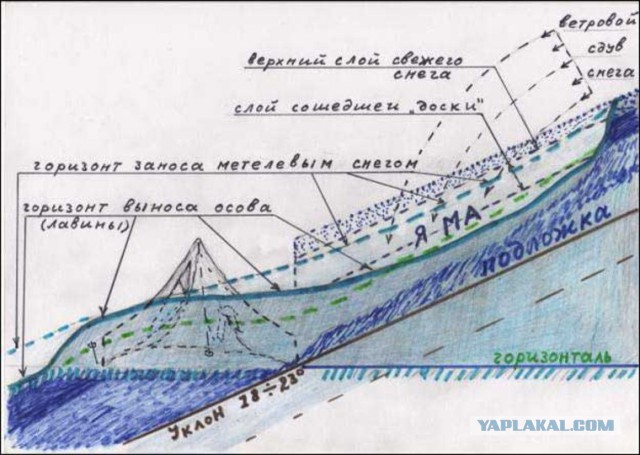 ветровой
сдув
снега
верхний слой свежего
снега
слой сошедшей „доски"
горизонт заноса метелевым снегом
горизонт выноса осова
(лавины)
ЯМА
подложка
горизонталь
Уклон 18÷23°
YAPLAKAL.COM